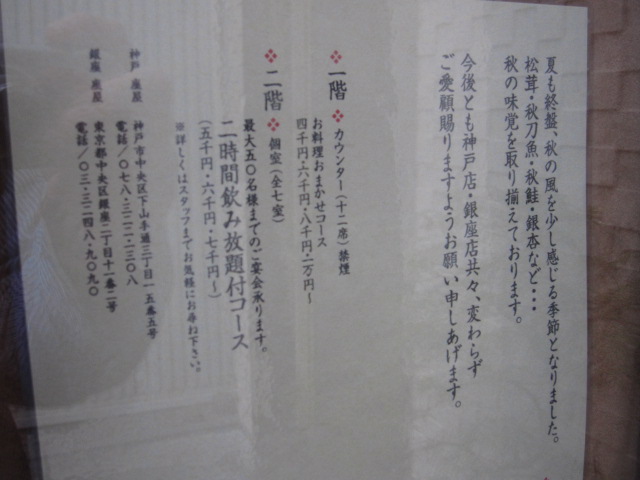 夏も終盤、秋の風を少し感じる季節となりました。
松茸・秋刀魚・秋鮭・銀杏など・・・
秋の味覚を取り揃えております。
今後とも神戸店・銀座店共々、変わらず
ご愛顧賜りますようお願い申しあげます。
一階 カウンター（十二席）禁煙
お料理おまかせコース
四千円・六千円・八千円・一万円〜
二階 個室（全七室）
最大五〇名様までのご宴会承ります。
二時間飲み放題付コース
（五千円・六千円・七千円〜）
※詳しくはスタッフまでお気軽にお尋ね下さい。
神戸 座屋 神戸市中央区下山手通三丁目一五番五号
電話／〇七八・三二二・二三〇八
銀座 座屋 東京都中央区銀座二丁目十一番二号
電話／〇三・三二四八・九〇九〇